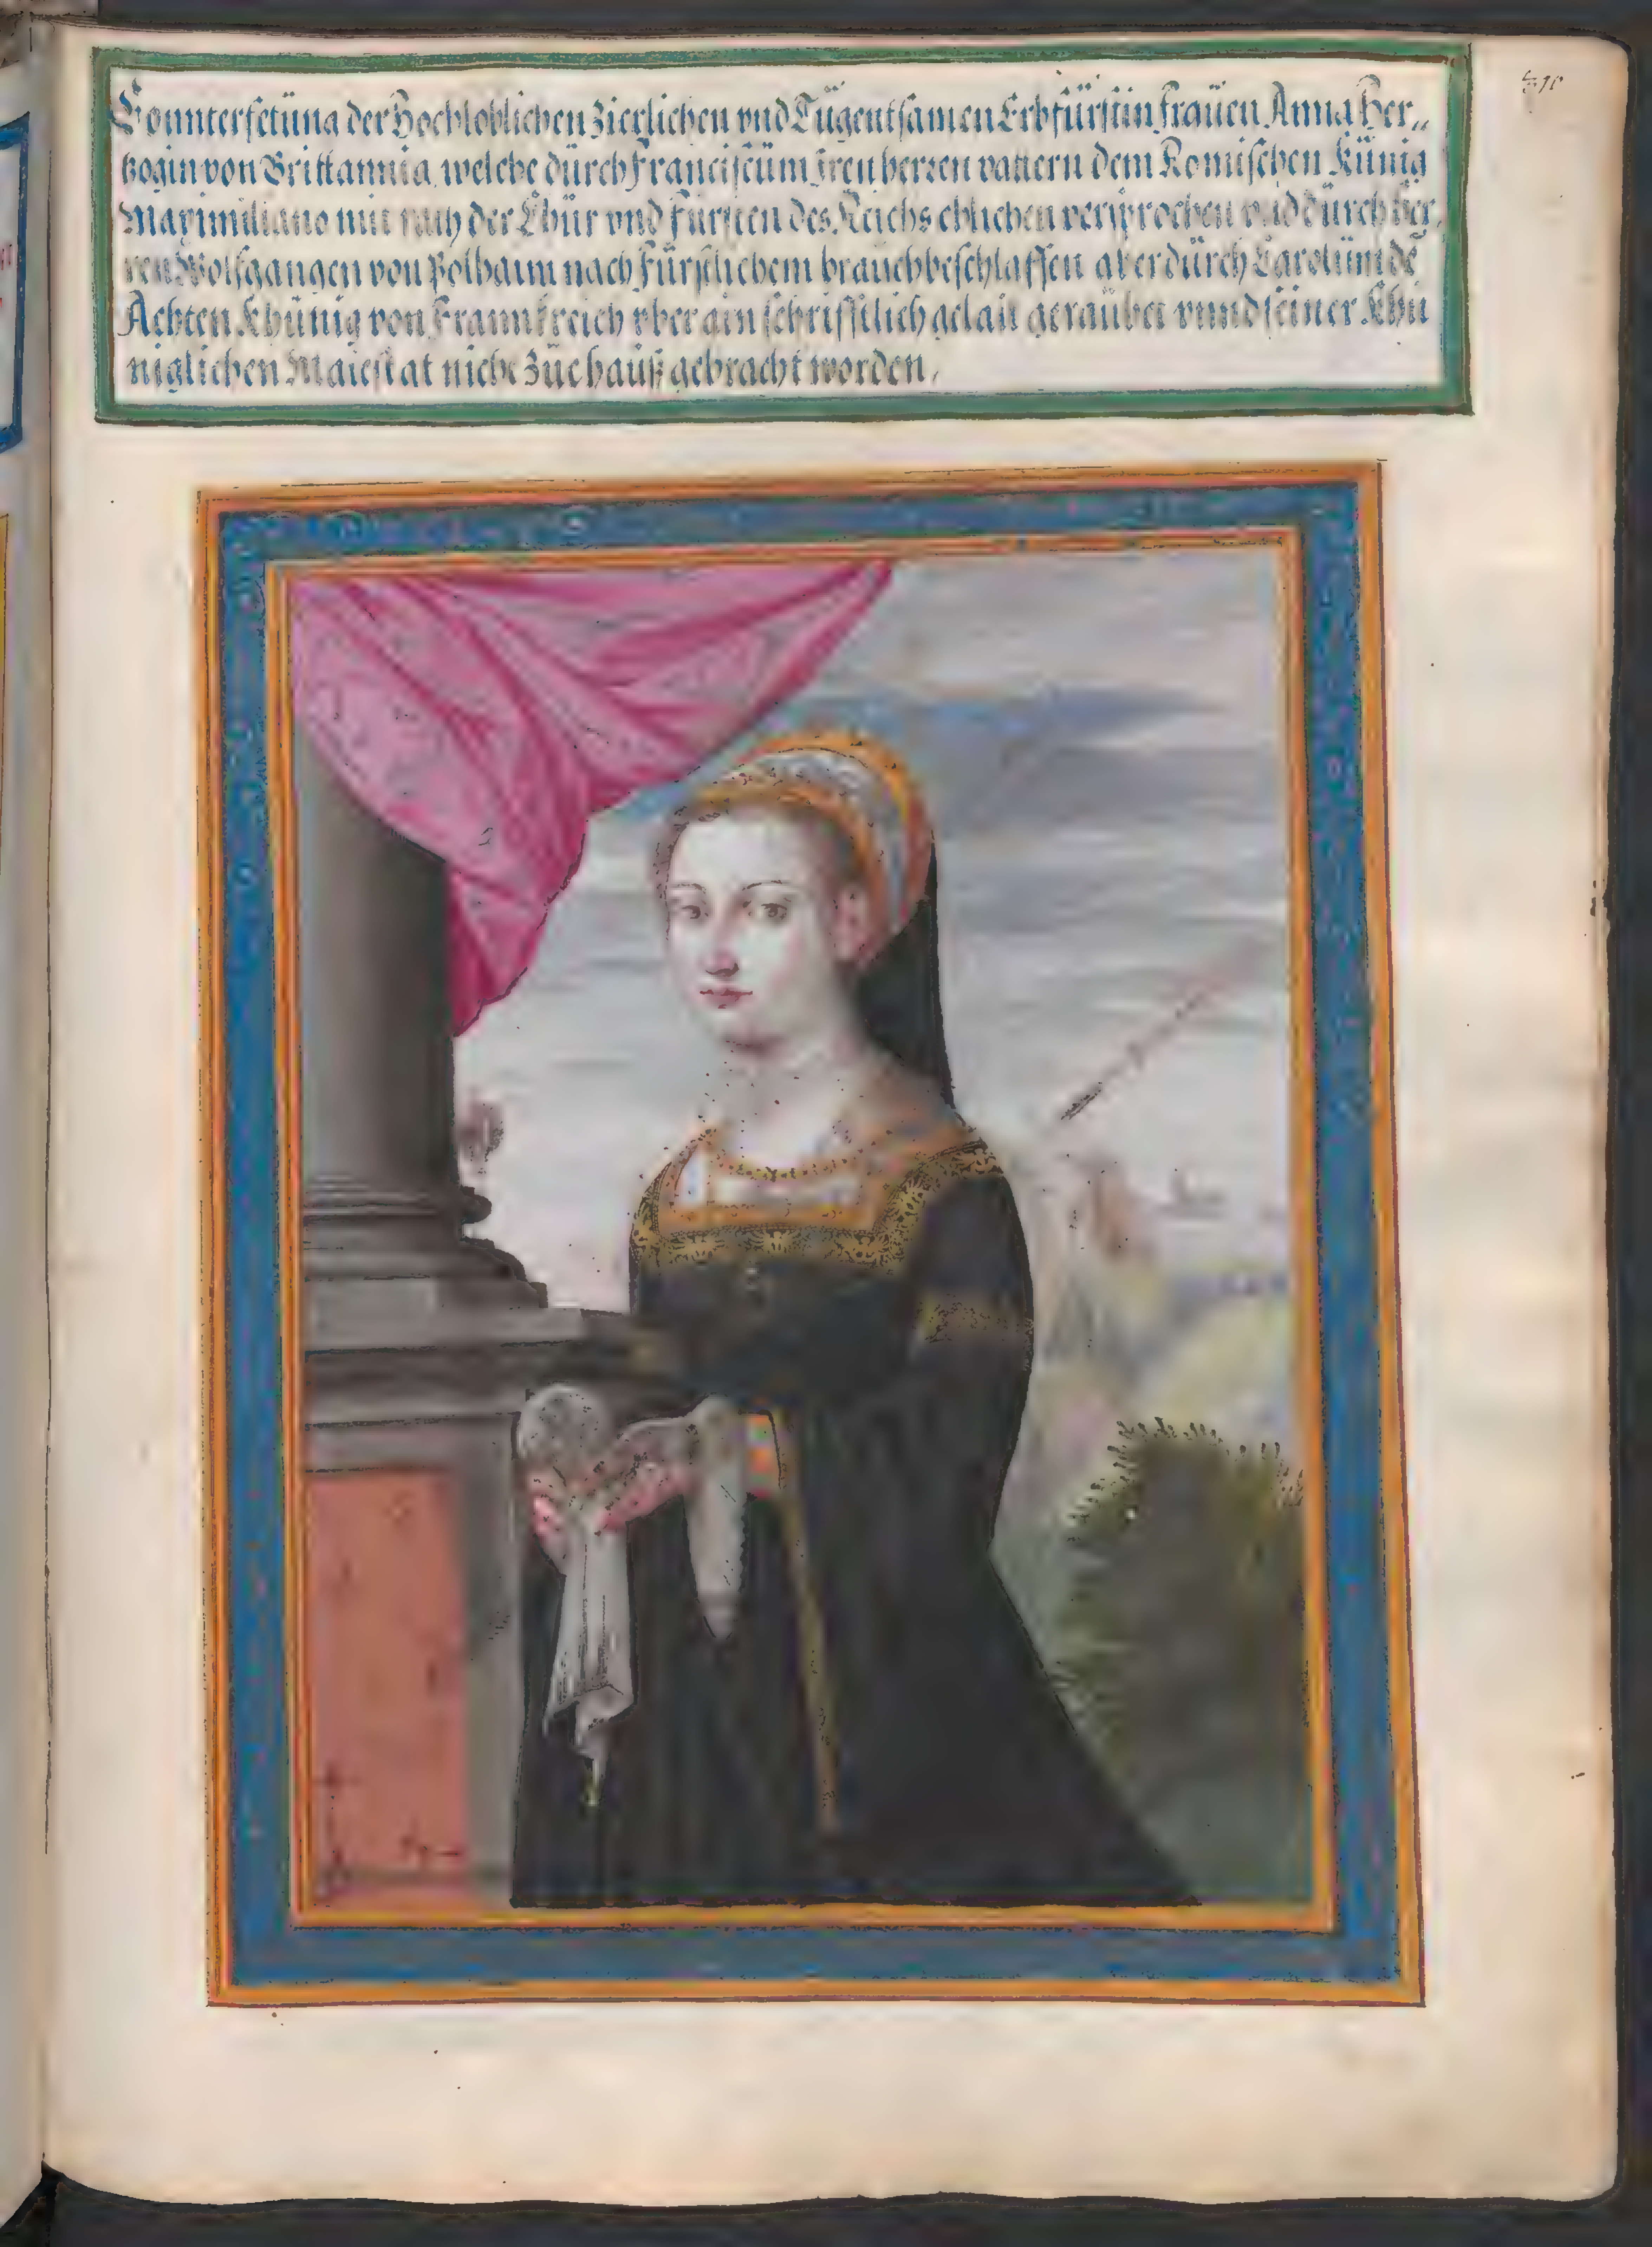 Counterfetüna der Hochloblichen Zierlichen vnd Tügentsamen Erbfürstin fraüen Anna Her„
tzogin von Brittannia, welche dürch Franciscüm Iren herren vattern dem Romischen Künig
Maximiliano mit rath der Chür vnd Fürsten des Reichs ehlichen versprochen vnd dürch her,
ren Wolfgangen von Polhaim nach Fürstlichem braüch beschlaffen aber dürch Carolüm de
Achten Khünig von Frannkreich vber ain schrifftlich gelait geraübet vnnd seiner Khü
niglichen Maiestat nicht zue hauß gebracht worden,